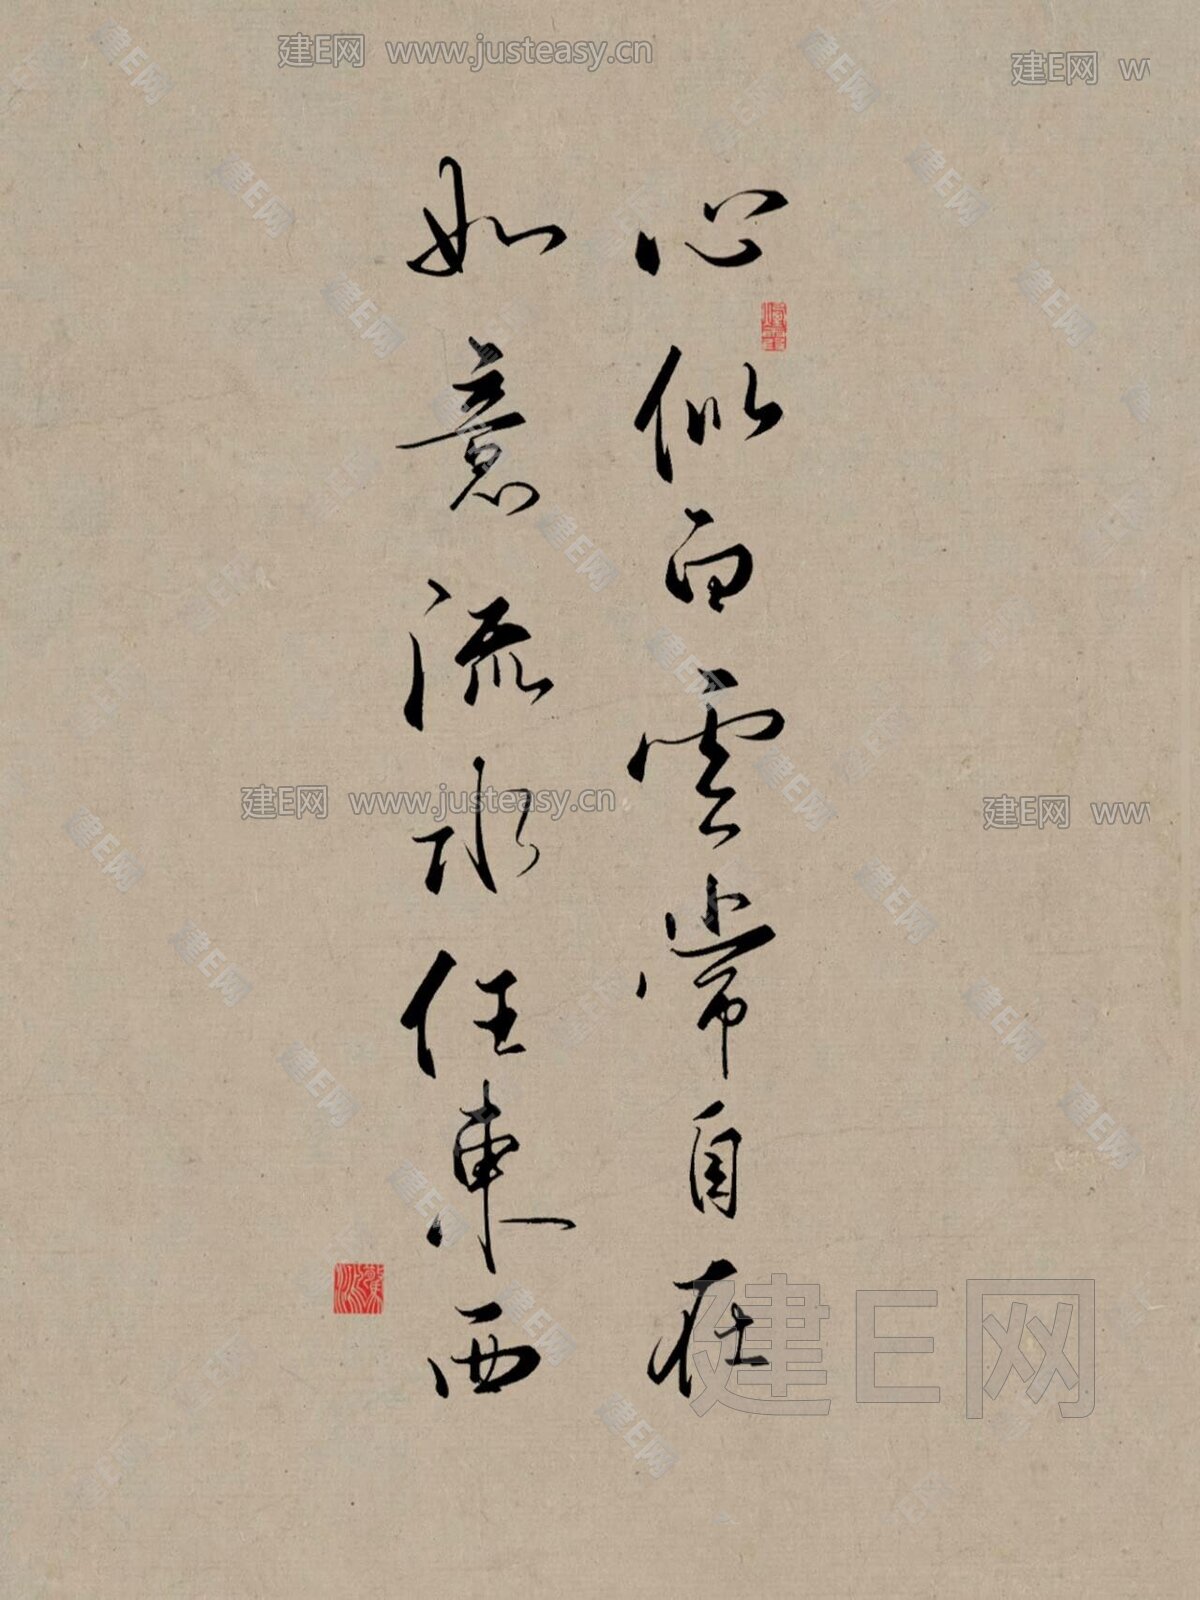 心似白雲常自在
如意流水任東西
建E网 www.justeasy.cn
建E网 w
建E网 www.justeasy.cn
建E网 ww
建E网